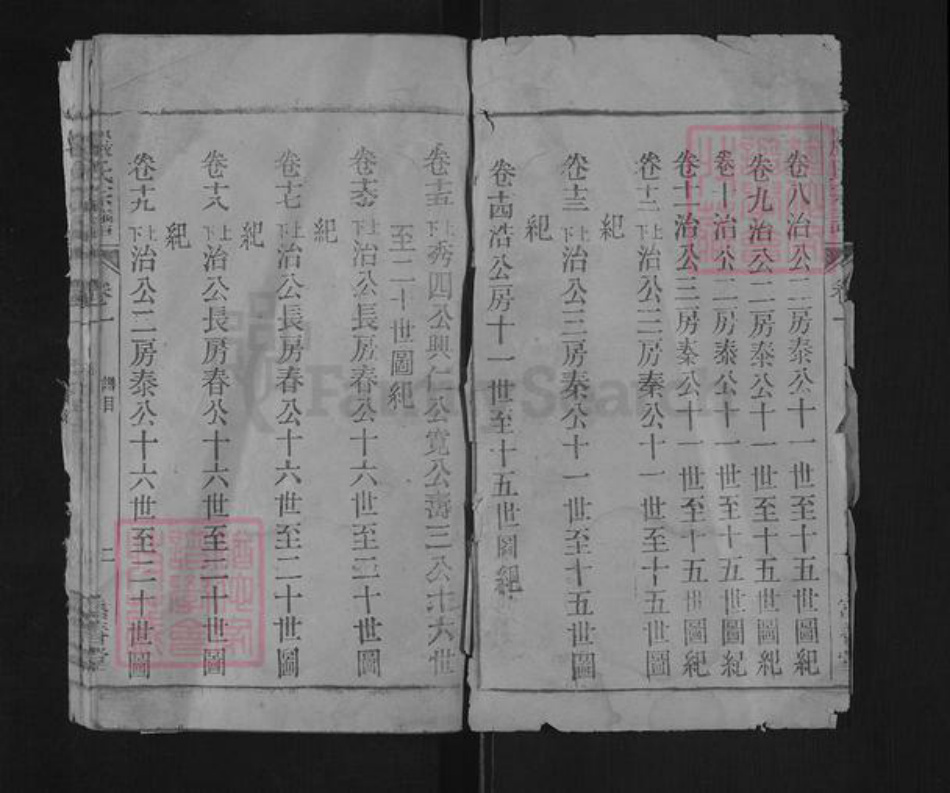 卷八治公二房泰公十一世至十五世圖紀
卷九治公二房泰公十一世至十五世圖紀
卷十治公二房泰公十一世至十五世圖紀
卷十一治公三房秦公十一世至十五世圖紀
卷十二上下治公三房秦公十一世至十五世圖
紀
卷十三上下治公三房秦公十一世至十五世圖
紀
卷十四浩公房十一世至十五世圖紀
卷十五上下秀四公興仁公寬公壽三公十六世
至二十世圖紀
卷十六上下治公長房春公十六世至二十世圖
卷十七上下治公長房春公十六世至二十世圖
紀
卷十八上下治公長房春公十六世至二十世圖
紀
卷十九上下治公二房泰公十六世至二十世圖
紀
氏宗譜
卷一
譜目
二
FamilySearch